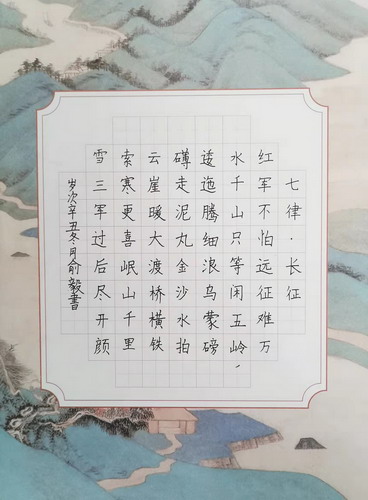 七律·长征
红军不怕远征难万
水千山只等闲五岭、
逶迤腾细浪乌蒙磅
礴走泥丸金沙水拍
云崖暖大渡桥横铁
索寒更喜岷山千里
雪三军过后尽开颜
岁次辛丑冬月俞毅書